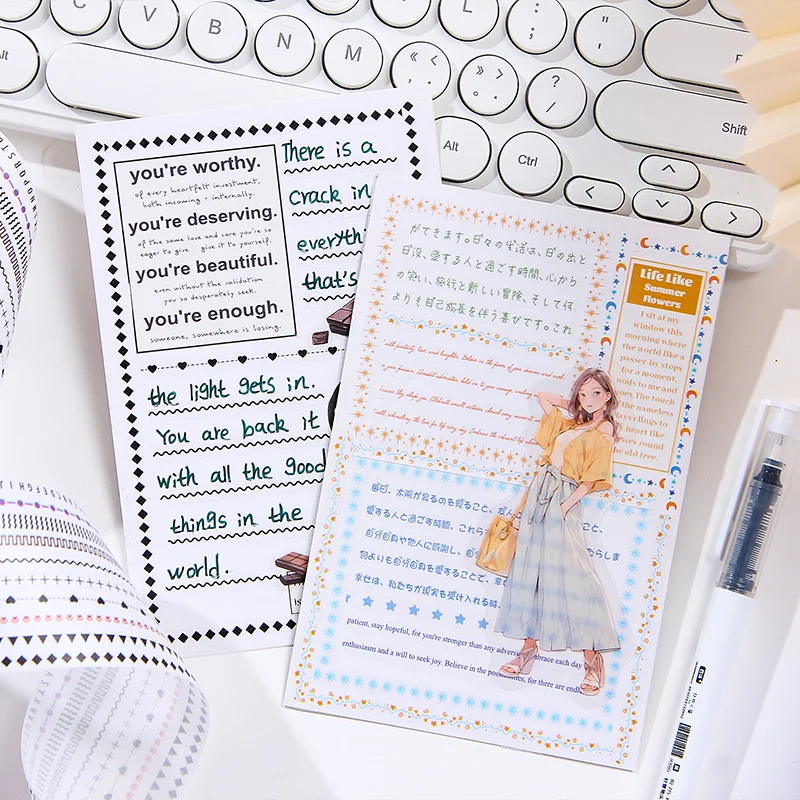 C
V
B
N
M
L
:
;
"
'
«
‹
»
›
?
/
Alt
Alt
Ctrl
Shift
you're worthy.
of every heartfelt investment,
both incoming + internally.
you're deserving.
of the same love and care you're so
eager to give give it to yourself.
you're beautiful.
even without the validation
you so desperately seek.
you're enough.
someone, somewhere is losing.
There is a
crack in
everyth
that's
the light gets in.
You are back it
with all the good
things in the
world.
ができます。日々の生活は、日の出と
日没、愛する人と過ごす時間、心から
の笑い、旅行と新しい冒険、そして何
よりも自己成長を伴う喜びです。これ
Life Like
Summer
Flowers
I sit at my
window this
morning where
the world like a
passer-by stops
for a moment,
nods to me and
goes. The touch
of the nameless
days clings to
heart like
roses round
the old tree.
毎日、太陽が昇るのを見ること、友人 こと、
愛する人と過ごす時間、これら
自分自身や他人に感謝し、自 たらしま
何よりも自分自身を愛することで、幸
幸せは、私たちが現実を受け入れる時、
patient, stay hopeful, for you're stronger than any advers embrace each day
enthusiasm and a will to seek joy. Believe in the possibilities, for there are endl